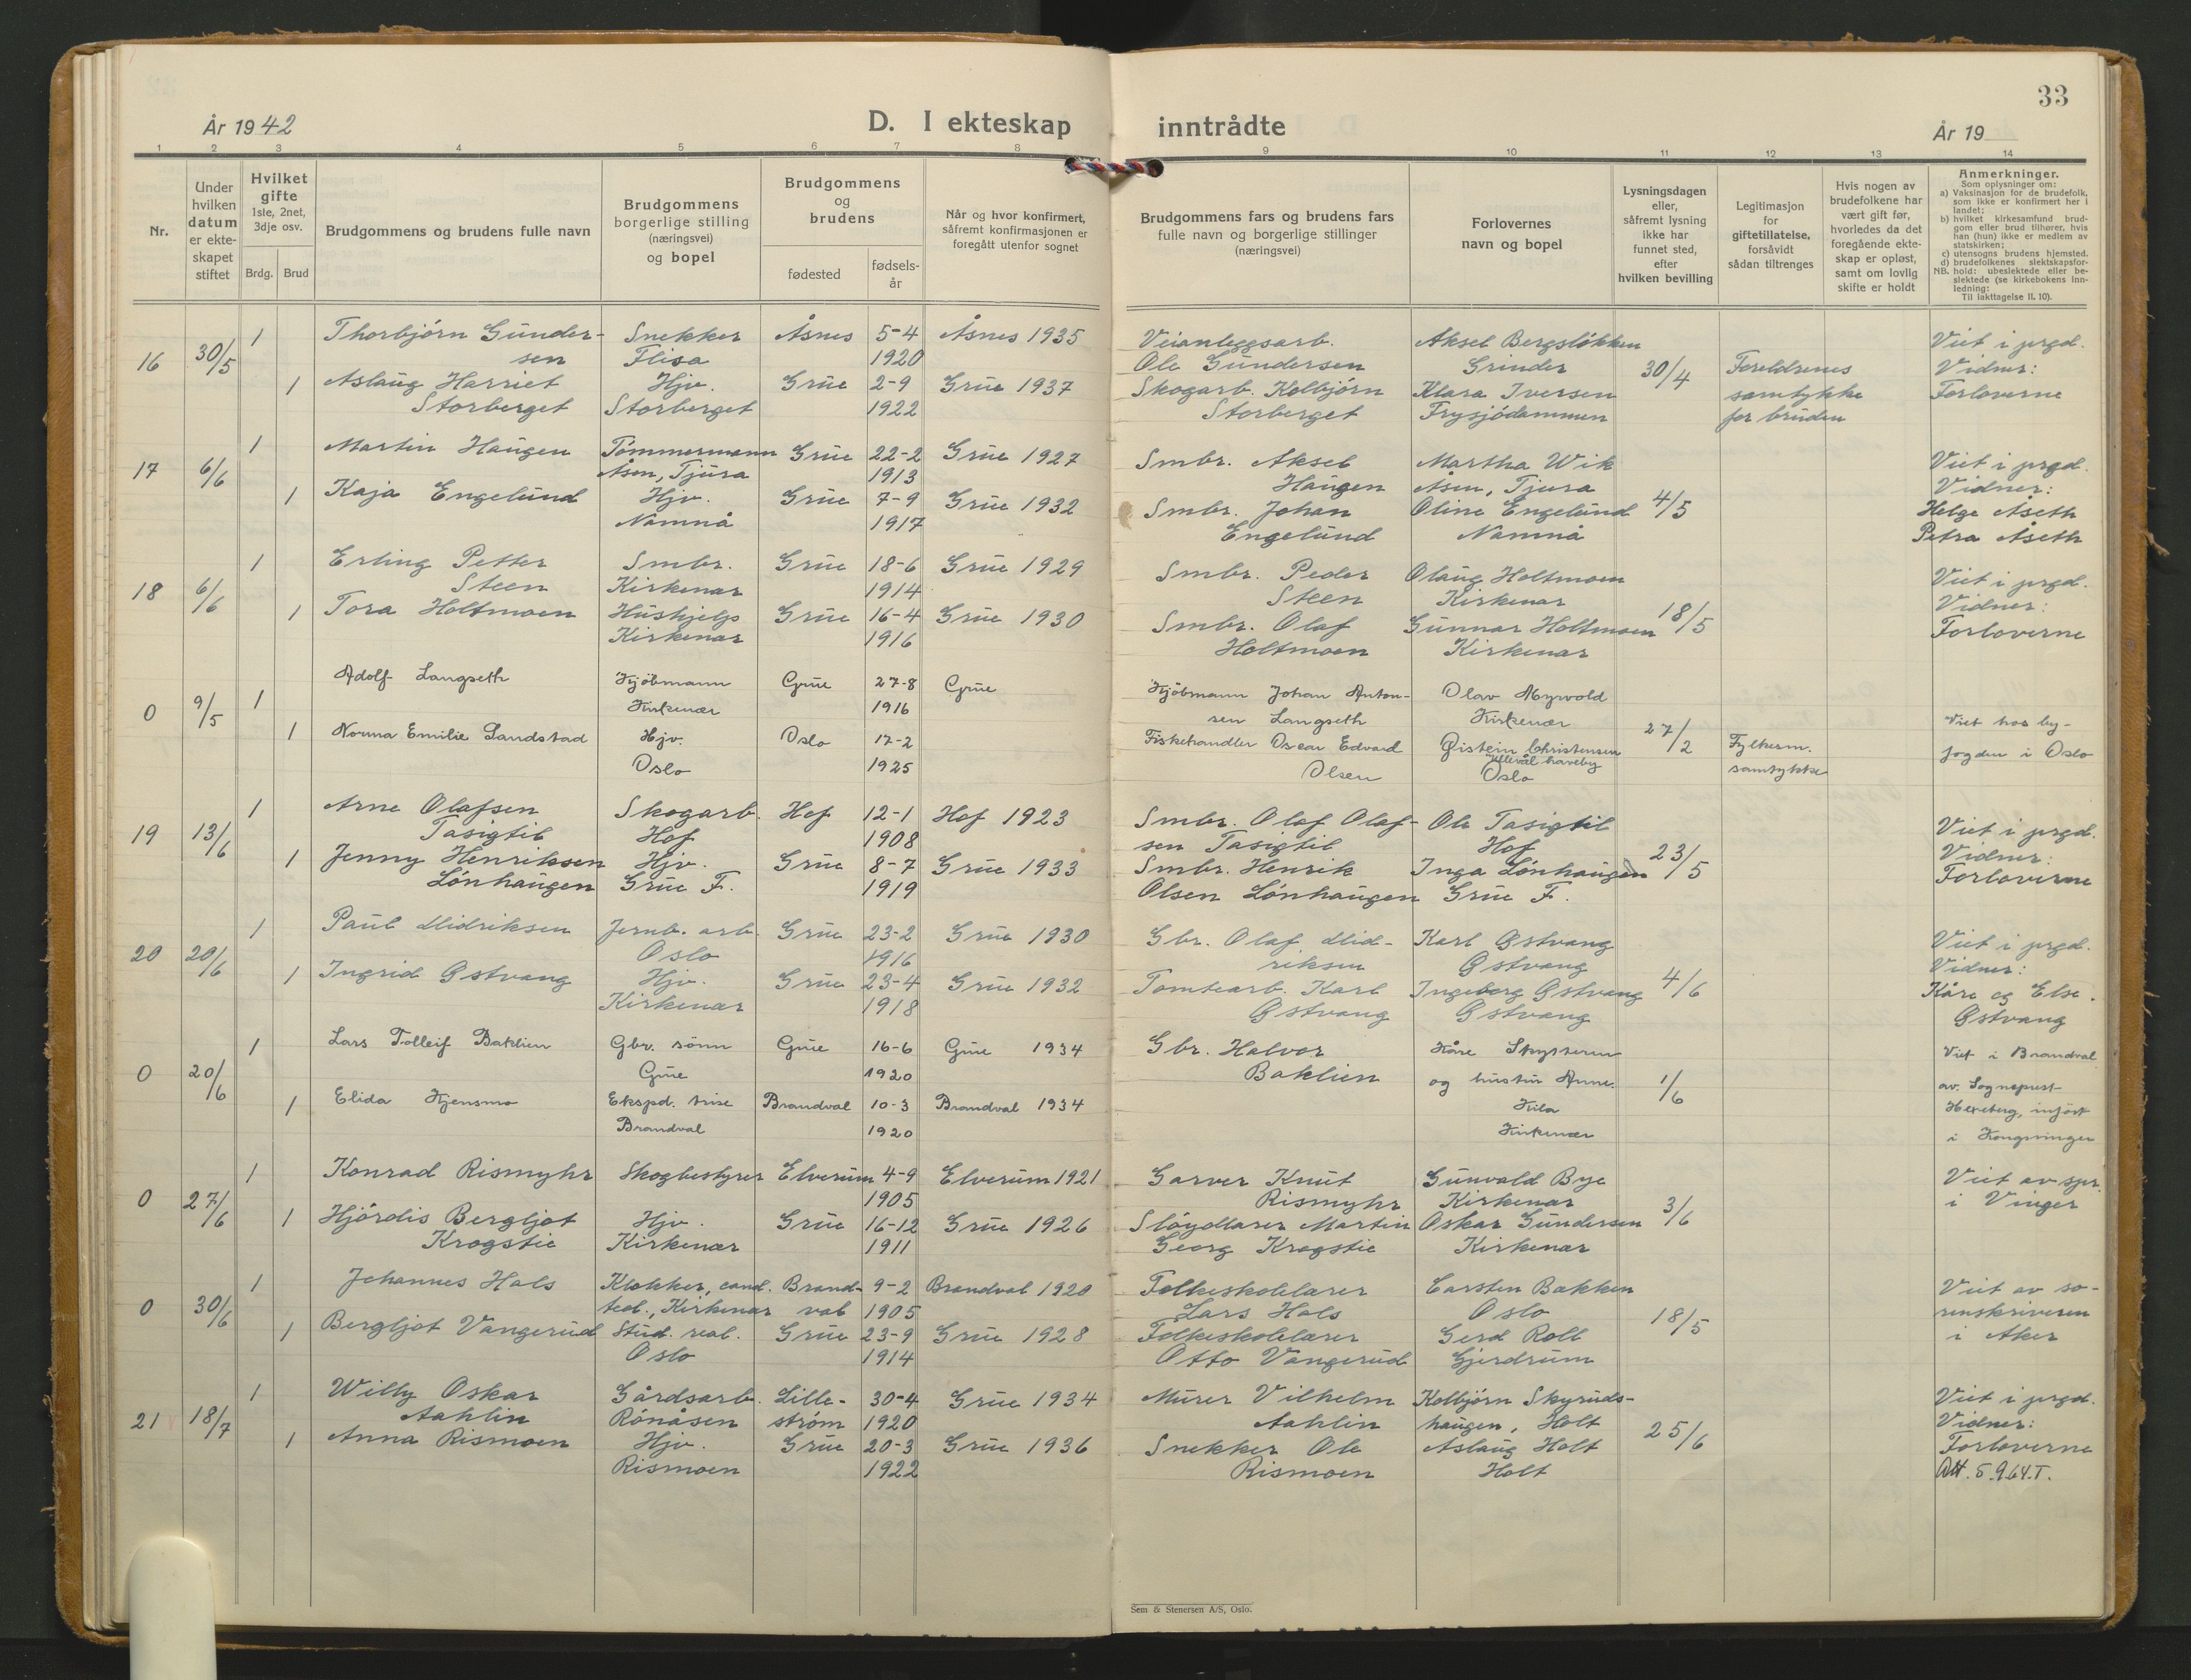 33
År 1942
D. I ekteskap inntrådte
År 19
1 2 3 4 5 6 7 8 9 10 11 12 13 14
Nr.
Under hvilken datum er ekte-skapet stiftet
Hvilket gifte 1ste, 2net, 3dje osv.
Brdg. Brud
Brudgommens og brudens fulle navn
Brudgommens borgerlige stilling (næringsvei) og bopel
Brudgommens og brudens
fødested
fødsels-år
Når og hvor konfirmert, såfremt konfirmasjonen er foregått utenfor sognet
Brudgommens fars og brudens fars fulle navn og borgerlige stillinger (næringsvei)
Forlovernes navn og bopel
Lysningsdagen eller, såfremt lysning ikke har funnet sted, efter hvilken bevilling
Legitimasjon for giftetillatelse, forsåvidt sådan tiltrenges
Hvis nogen av brudefolkene har vært gift før, hvorledes da det foregående ekte-skap er opløst, samt om lovlig skifte er holdt
Anmerkninger.
Som oplysninger om:
a) Vaksinasjon for de brudefolk, som ikke er konfirmert her i landet;
b) hvilket kirkesamfund brud-gom eller brud tilhører, hvis han (hun) ikke er medlem av statskirken;
c) utensogns brudens hjemsted.
d) brudefolkenes slektskapsfor-hold: ubeslektede eller be-slektede (se kirkebokens inn-ledning:
NB.
Til iakttagelse II. 10).
1 Thorbjörn Gunder- Snekker Åsnes 5-4 Åsnes 1935 Veianleggsarb. Aksel Bergslökken Viet i prgd.
16 30/5 sen Flisa 1920 Ole Gundersen Grinder 30/4 Foreldrenes Vidner:
1 Aslaug Harriet Hjv. Grue 2-9 Grue 1937 Skogarb. Kolbjörn Klara Iversen samtykke Forloverne
Storberget Storberget 1922 Storberget Frysjödammen for bruden
1 Martin Haugen Tömmermann Grue 22-2 Grue 1927 Smbr. Aksel Martha Wik Viet i prgd.
17 6/6 Åsen, Tjura 1913 Haugen Åsen, Tjura 4/5 Vidner:
1 Kaja Engelund Hjv. Grue 7-9 Grue 1932 Smbr. Johan Oline Engelund Helge Åseth
Namnå 1917 Engelund Namnå Petra Åseth
1 Erling Petter Smbr. Grue 18-6 Grue 1929 Smbr. Peder Olaug Holtmoen Viet i prgd.
18 6/6 Steen Kirkenær 1914 Steen Kirkenær 18/5 Vidner:
1 Tora Holtmoen Hushjelp Grue 16-4 Grue 1930 Smbr. Olaf Gunnar Holtmoen Forloverne
Kirkenær 1916 Holtmoen Kirkenær
1 Adolf Langseth Kjöbmann Grue 27-8 Grue Kjöbmann Johan Anton- Olav Myrvold
0 9/5 Kirkenær 1916 sen Langseth Kirkenær 27/2 Viet hos by-
1 Norma Emilie Sandstad Hjv. Oslo 17-2 Fiskehandler Oscar Edvard Øistein Christensen Fylkesm. fogden i Oslo
Ullevål haveby
Oslo 1925 Olsen Oslo samtykke
1 Arne Olafsen Skogarb. Hof 12-1 Hof 1923 Smbr. Olaf Olaf- Ole Tasigtil Viet i prgd.
19 13/6 Tasigtil Hof 1908 sen Tasigtil Hof 23/5 Vidner:
1 Jenny Henriksen Hjv. Grue 8-7 Grue 1933 Smbr. Henrik Inga Lönhaugen Forloverne
Lönhaugen Grue F. 1919 Olsen Lönhaugen Grue F.
1 Paul Midriksen Jernb. arb. Grue 23-2 Grue 1930 Gbr. Olaf Mid- Karl Östvang Viet i prgd.
20 20/6 Oslo 1916 riksen Östvang Vidner:
1 Ingrid Östvang Hjv. Grue 23-4 Grue 1932 Tomtearb. Karl Ingeborg Östvang 4/6 Kåre og Else
Kirkenær 1918 Östvang Östvang Östvang
1 Lars Tolleif Baklien Gbr. sönn Grue 16-6 Grue 1934 Gbr. Halvor Kåre Skysteren Viet i Brandval
0 20/6 Grue 1920 Baklien og hustru Anne 1/6 av Sogneprest
1 Elida Kjensmo Ekspd. trise Brandval 10-3 Brandval 1934 Kila Hexeberg, inført
Brandval 1920 Kirkenær i Kongsvinger
1 Konrad Rismyhr Skogbestyrer Elverum 4-9 Elverum 1921 Garver Knut Gunvald Bye Viet av spr.
0 27/6 1905 Rismyhr Kirkenær 3/6 i Vinger
1 Hjördis Bergljot Hjv. Grue 16-12 Grue 1926 Slöydlærer Martin Oskar Gundersen
Krogstie Kirkenær 1911 Georg Krogstie Kirkenær
1 Johannes Hals Klokker, cand. Brand- 9-2 Brandval 1920 Folkeskolelærer Carsten Bakken Viet av so-
0 30/6 teol., Kirkenær val 1905 Lars Hals Oslo 18/5 renskriveren
1 Bergljot Vangerud Stud. real. Grue 23-9 Grue 1928 Folkeskolelærer Gerd Roll i Aker
Oslo 1914 Otto Vangerud Gjerdrum
1 Willy Oskar Gårdsarb. Lille- 30-4 Grue 1934 Murer Vilhelm Kolbjörn Skyruds- Viet i prgd.
21 18/7 Aahlin Rönåsen ström 1920 Aahlin haugen, Holt 25/6 Vidner:
1 Anna Rismoen Hjv. Grue 20-3 Grue 1936 Snekker Ole Aslaug Holt Forloverne
Rismoen 1922 Rismoen Holt Att. 5.9.64.T.
Sem & Stenersen A/S, Oslo.